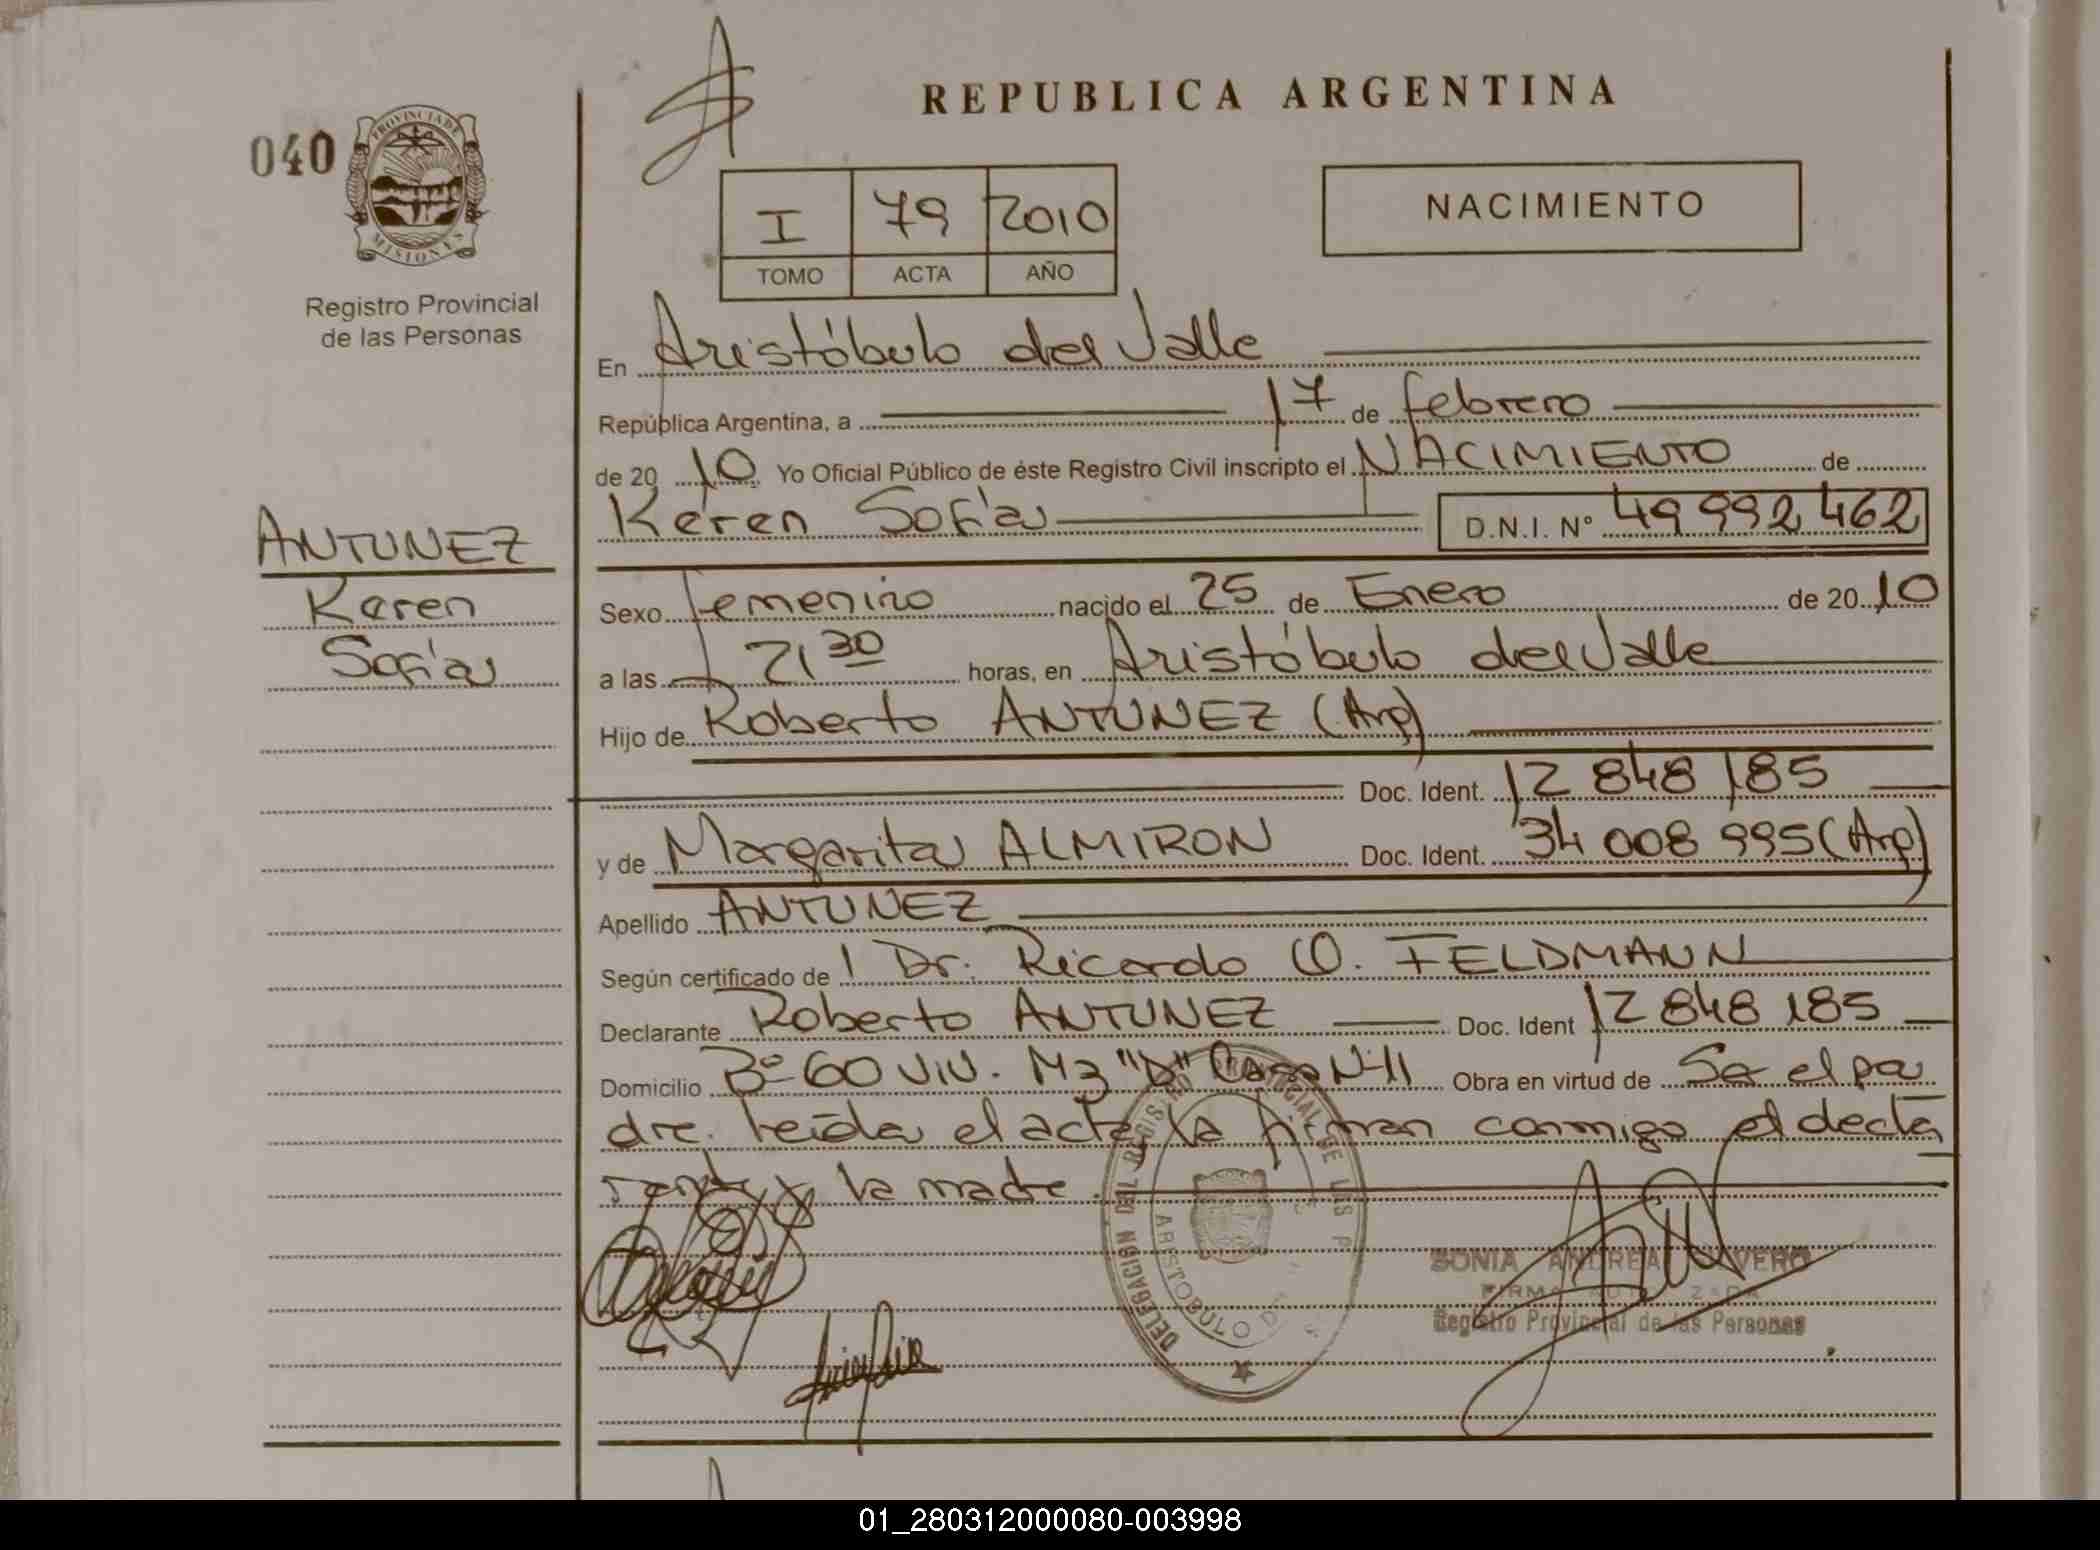 REPUBLICA ARGENTINA
040
PROVINCIA DE
MISIONES
Registro Provincial
de las Personas
I 79 2010
TOMO ACTA AÑO
NACIMIENTO
En Aristóbulo del Valle
República Argentina, a 17 de febrero
de 20 10 Yo Oficial Público de éste Registro Civil inscripto el NACIMIENTO de
Karen Sofía D.N.I. Nº 49 992 462
ANTUNEZ
Karen
Sofía
Sexo femenino nacido el 25 de Enero de 20 10
a las 21 30 horas, en Aristóbulo del Valle
Hijo de Roberto ANTUNEZ (Arg)
Doc. Ident. 12 848 185
y de Margarita ALMIRON Doc. Ident. 34 008 995 (Arg)
Apellido ANTUNEZ
Según certificado de Dr. Ricardo O. FELDMANN
Declarante Roberto ANTUNEZ Doc. Ident 12 848 185
Domicilio Bº 60 VIV. Mz "D" Casa Nº 11 Obra en virtud de Se el pa
dre. Leída el acta la firman conmigo el decla
rante y la madre.
DELEGACIÓN DEL REGISTRO PROVINCIAL DE LAS P
ARISTOBULO D
SONIA ANDREA
Registro Provincial de las Personas
01_280312000080-003998